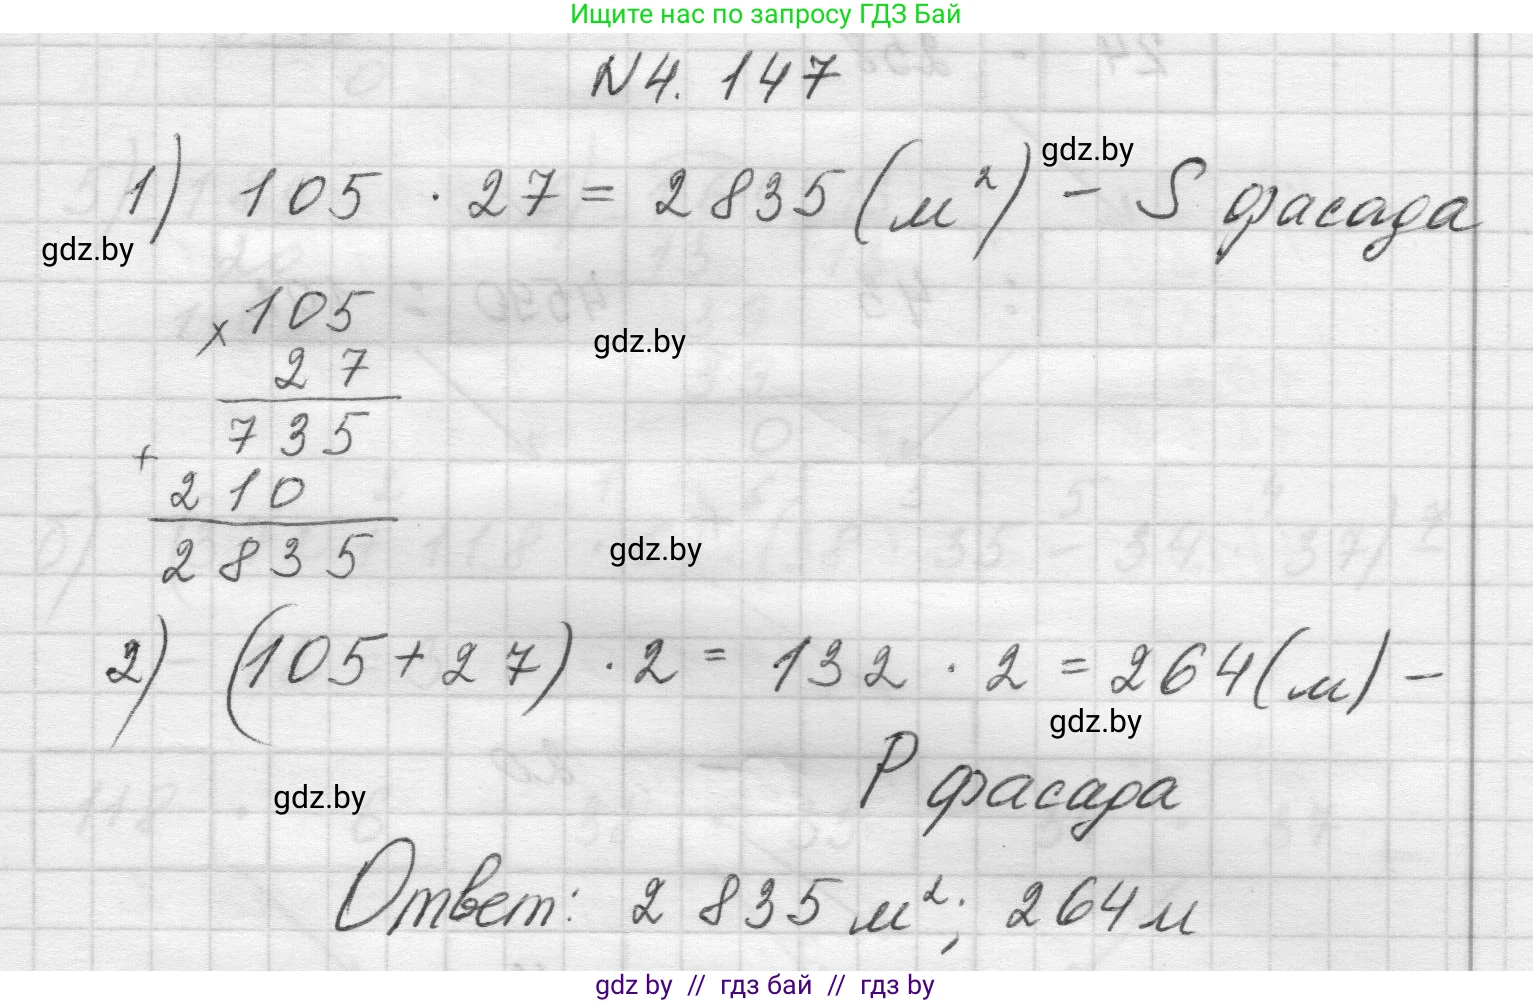 Ищите нас по запросу ГДЗ Бай
N4. 147
gdz.by
1) 105 · 27 = 2835 (м²) - S фасада
gdz.by
×105
gdz.by
27
735
+
210
2835
gdz.by
2) (105 + 27) · 2 = 132 · 2 = 264 (м) -
gdz.by
P фасада
gdz.by
Ответ: 2 835 м²; 264 м
gdz by // гдз бай // гдз by